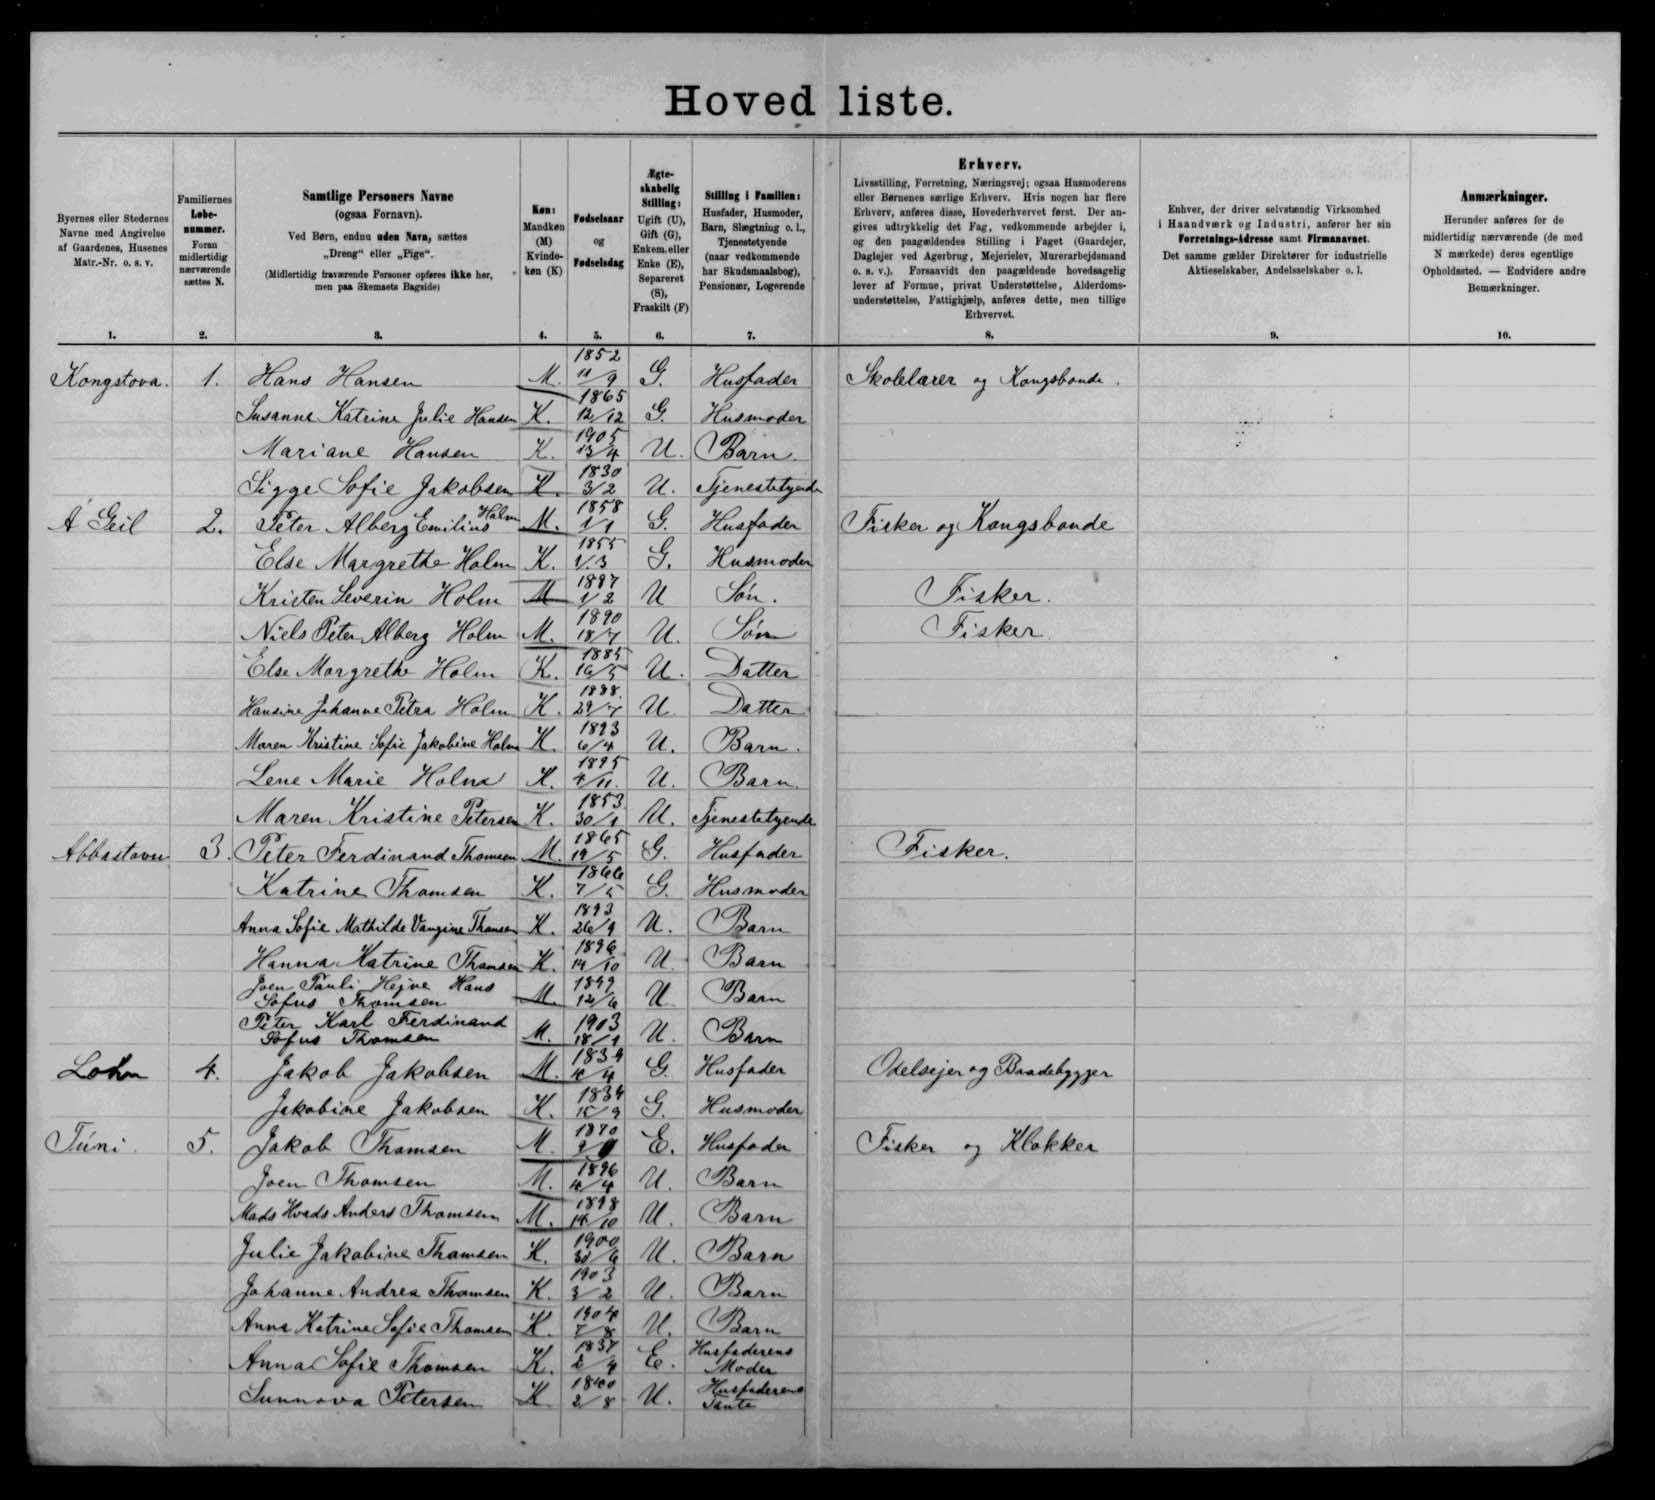 Hoved liste.
Byernes eller Stedernes
Navne med Angivelse
af Gaardenes, Husenes
Matr.-Nr. o. s. v.
Familiernes
Løbe-
nummer.
Foran
midlertidig
nærværende
sættes N.
Samtlige Personers Navne
(ogsaa Fornavn).
Ved Børn, endnu uden Navn, sættes
„Dreng“ eller „Pige“.
(Midlertidig fraværende Personer opføres ikke her,
men paa Skemaets Bagside)
Køn:
Mandkøn
(M)
Kvinde-
køn (K)
Fødselsaar
og
Fødselsdag
Ægte-
skabelig
Stilling:
Ugift (U),
Gift (G),
Enkem. eller
Enke (E),
Separeret
(S),
Fraskilt (F)
Stilling i Familien:
Husfader, Husmoder,
Barn, Slægtning o. l.,
Tjenestetyende
(naar vedkommende
har Skudsmaalsbog),
Pensionær, Logerende
Erhverv.
Livsstilling, Forretning, Næringsvej; ogsaa Husmoderens
eller Børnenes særlige Erhverv. Hvis nogen har flere
Erhverv, anføres disse, Hovederhvervet først. Der an-
gives udtrykkelig det Fag, vedkommende arbejder i,
og den paagældendes Stilling i Faget (Gaardejer,
Daglejer ved Agerbrug, Mejerielev, Murerarbejdsmand
o. s. v.). Forsaavidt den paagældende hovedsagelig
lever af Formue, privat Understøttelse, Alderdoms-
understøttelse, Fattighjælp, anføres dette, men tillige
Erhvervet.
Enhver, der driver selvstændig Virksomhed
i Haandværk og Industri, anfører her sin
Forretnings-Adresse samt Firmanavnet.
Det samme gælder Direktører for industrielle
Aktieselskaber, Andelsselskaber o. l.
Anmærkninger.
Herunder anføres for de
midlertidig nærværende (de med
N mærkede) deres egentlige
Opholdssted. — Endvidere andre
Bemærkninger.
1. 2. 3. 4. 5. 6. 7. 8. 9. 10.
Kongstova. 1. Hans Hansen M. 1852 11/9 G. Husfader Skolelærer og Kongsbonde.
Susanne Katrine Julie Hansen K. 1865 12/12 G. Husmoder
Mariane Hansen K. 1905 13/4 U. Barn.
Sigge Sofie Jakobsen K. 1830 3/2 U. Tjenestetyende
Á Geil 2. Peter Alberg Emilius Holm M. 1858 1/1 G. Husfader Fisker og Kongsbonde
Else Margrethe Holm K. 1855 1/3 G. Husmoder
Kristen Severin Holm M 1887 1/2 U Søn. Fisker.
Niels Peter Alberg Holm M. 1890 18/7 U. Søn Fisker
Else Margrethe Holm K. 1885 16/5 U. Datter
Hansine Johanne Petra Holm K. 1888. 29/7 U Datter
Maren Kristine Sofie Jakobine Holm K. 1893 6/4 U. Barn.
Lene Marie Holm K. 1895 4/11. U. Barn.
Maren Kristine Petersen K. 1853 30/1 U. Tjenestetyende
Abbastovu 3. Peter Ferdinand Thomsen M. 1865 19/5 G. Husfader Fisker.
Katrine Thomsen K. 1866 7/5 G. Husmoder
Anna Sofie Mathilde Vangine Thomsen K. 1893 26/9 U. Barn
Hanna Katrine Thomsen K. 1896 14/10 U. Barn
Joen Pauli Hejne Hans
Sofus Thomsen M. 1899 12/6 U Barn
Peter Karl Ferdinand
Sofus Thomsen M. 1903 18/1 U. Barn
4. Jakob Jakobsen M. 1839 4/4 G. Husfader Odelsejer og Baadebygger
Jakobine Jakobsen K. 1834 15/9 G. Husmoder
Túni. 5. Jakob Thomsen M. 1870 E. Husfader Fisker og Klokker
Joen Thomsen M. 1896 4/4 U. Barn
Mads Hvads Anders Thomsen M. 1898 14/10 U. Barn
Julie Jakobine Thomsen K. 1900 30/6 U. Barn
Johanne Andrea Thomsen K. 1903 3/2 U. Barn
Anna Katrine Sofie Thomsen K. 1904 7/8 U. Barn
Anna Sofie Thomsen K. 1837 2/4 E. Husfaderens
Moder
Sunnova Petersen K 1840 2/8 U. Husfaderens
Tante